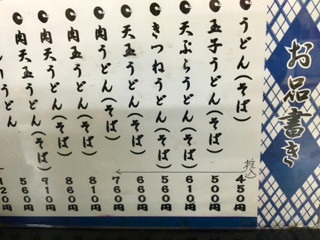 お品書き
うどん(そば) 450円
玉子うどん(そば) 500円
天ぷらうどん(そば) 610円
きつねうどん(そば) 560円
天玉うどん(そば) 660円
肉うどん(そば) 760円
肉玉うどん(そば) 810円
肉天うどん(そば) 860円
肉天玉うどん(そば) 910円
うどん 560円
20円
税込